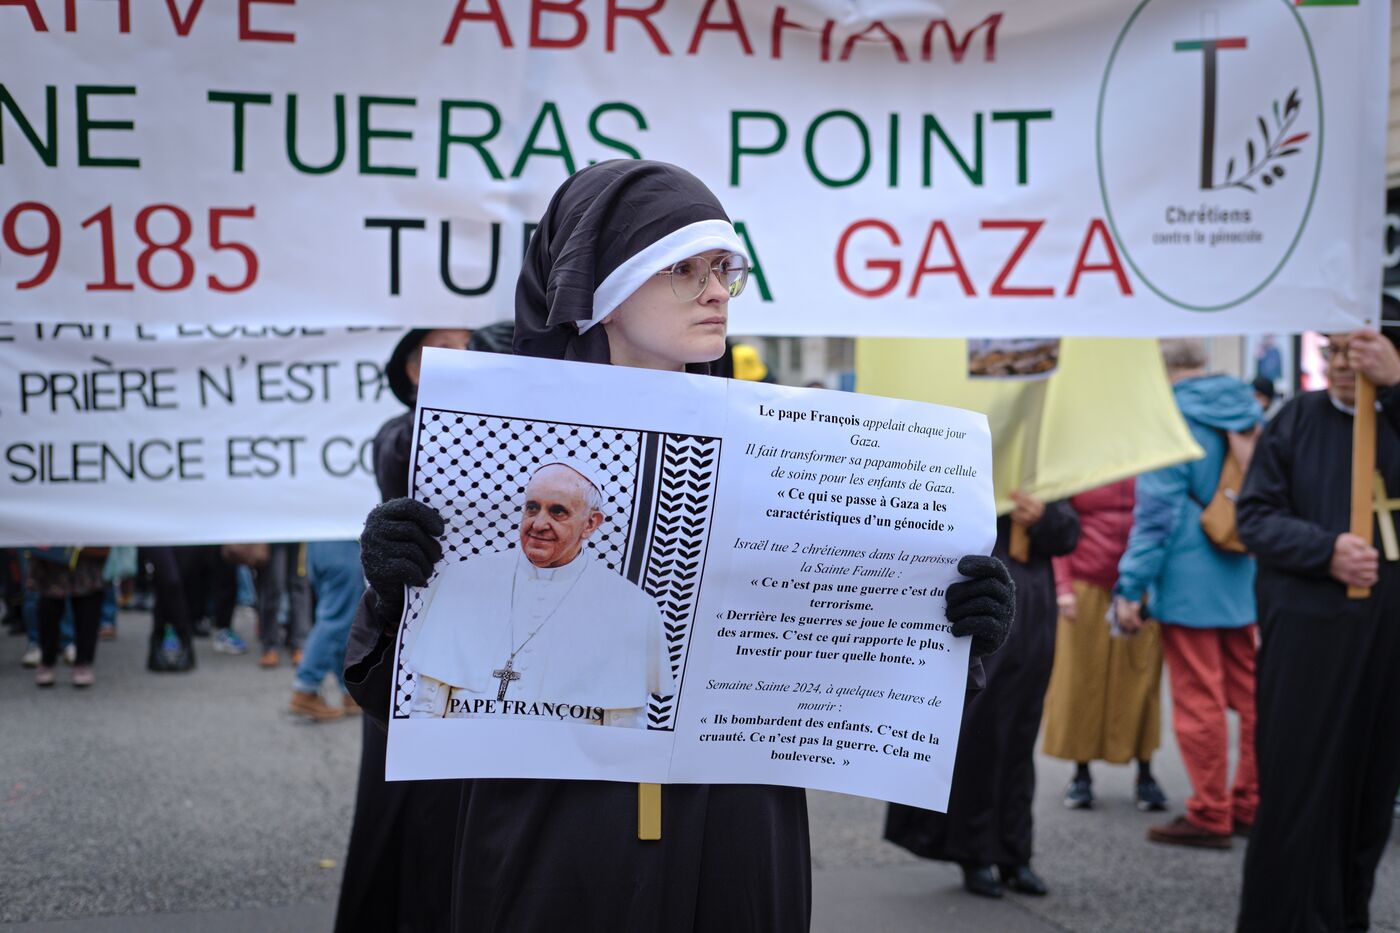 ABRAHAM
NE TUERAS POINT
9185
GAZA
Chrétiens
contre le génocide
PRIÈRE N'EST
SILENCE EST
PAPE FRANÇOIS
Le pape François appelait chaque jour
Gaza.
Il fait transformer sa papamobile en cellule
de soins pour les enfants de Gaza.
« Ce qui se passe à Gaza a les
caractéristiques d'un génocide »
Israël tue 2 chrétiennes dans la paroisse
la Sainte Famille :
« Ce n'est pas une guerre c'est du
terrorisme.
« Derrière les guerres se joue le commerce
des armes. C'est ce qui rapporte le plus .
Investir pour tuer quelle honte. »
Semaine Sainte 2024, à quelques heures de
mourir :
« Ils bombardent des enfants. C'est de la
cruauté. Ce n'est pas la guerre. Cela me
bouleverse. »